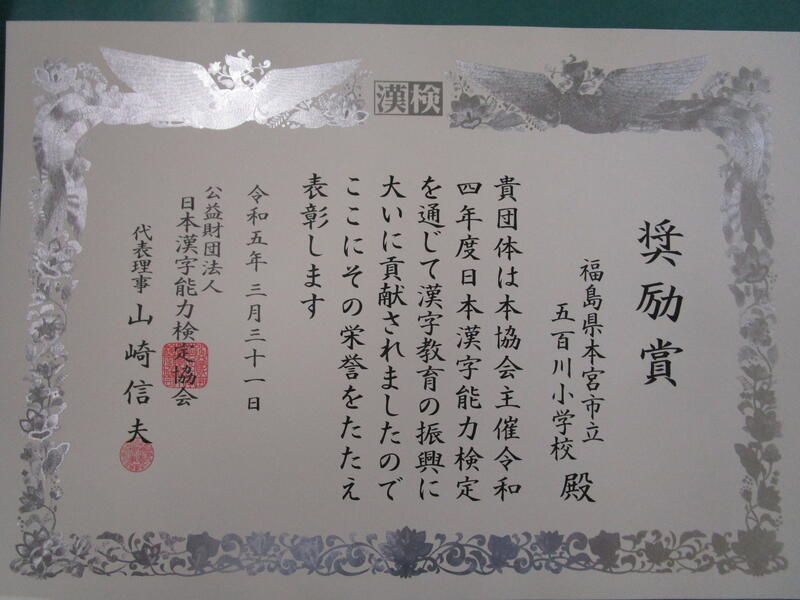 漢検
奨励賞
福島県本宮市立
五百川小学校 殿
貴団体は本協会主催令和
四年度日本漢字能力検定
を通じて漢字教育の振興に
大いに貢献されましたので
ここにその栄誉をたたえ
表彰します
令和五年三月三十一日
公益財団法人
日本漢字能力検定協会
代表理事 山崎信夫